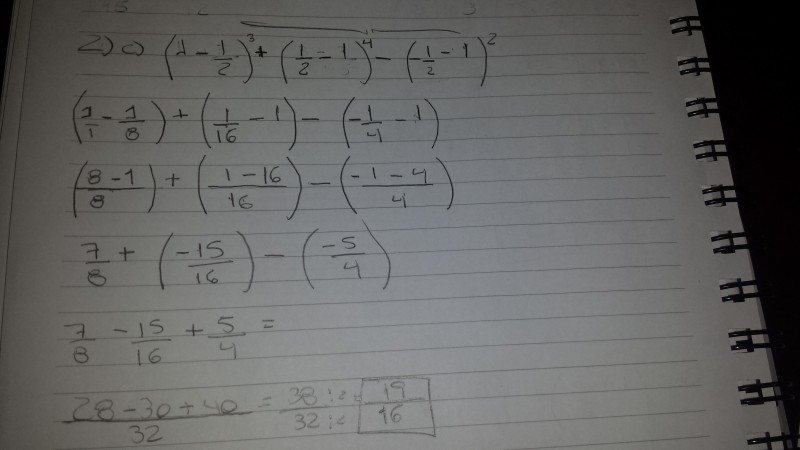 2) c) (1 - 1/2)³ + (1/2 - 1)⁴ - (-1/2 - 1)²
(1/1 - 1/8) + (1/16 - 1) - (-1/4 - 1)
(8 - 1/8) + (1 - 16/16) - (-1 - 4/4)
7/8 + (-15/16) - (-5/4)
7/8 - 15/16 + 5/4 =
28 - 30 + 40/32 = 38 :2/32 :2 = 19/16